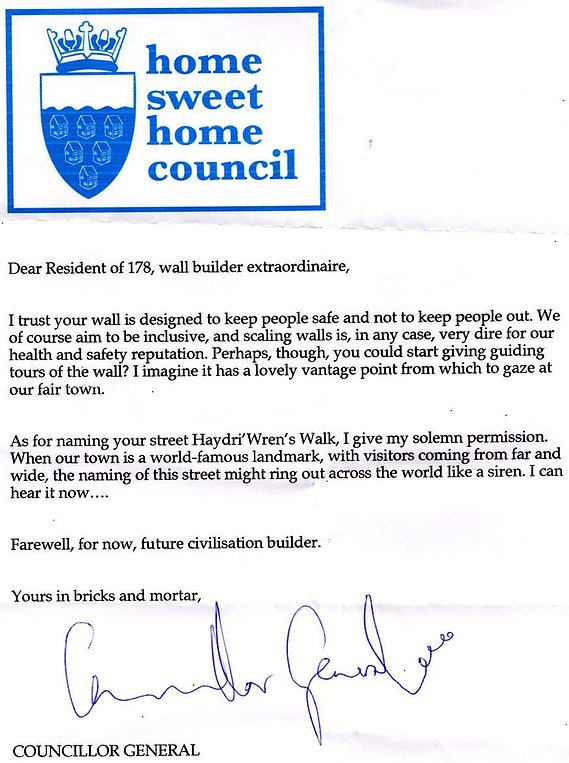 home
sweet
home
council
Dear Resident of 178, wall builder extraordinaire,
I trust your wall is designed to keep people safe and not to keep people out. We
of course aim to be inclusive, and scaling walls is, in any case, very dire for our
health and safety reputation. Perhaps, though, you could start giving guiding
tours of the wall? I imagine it has a lovely vantage point from which to gaze at
our fair town.
As for naming your street Haydri'Wren's Walk, I give my solemn permission.
When our town is a world-famous landmark, with visitors coming from far and
wide, the naming of this street might ring out across the world like a siren. I can
hear it now….
Farewell, for now, future civilisation builder.
Yours in bricks and mortar,
Councillor General
COUNCILLOR GENERAL